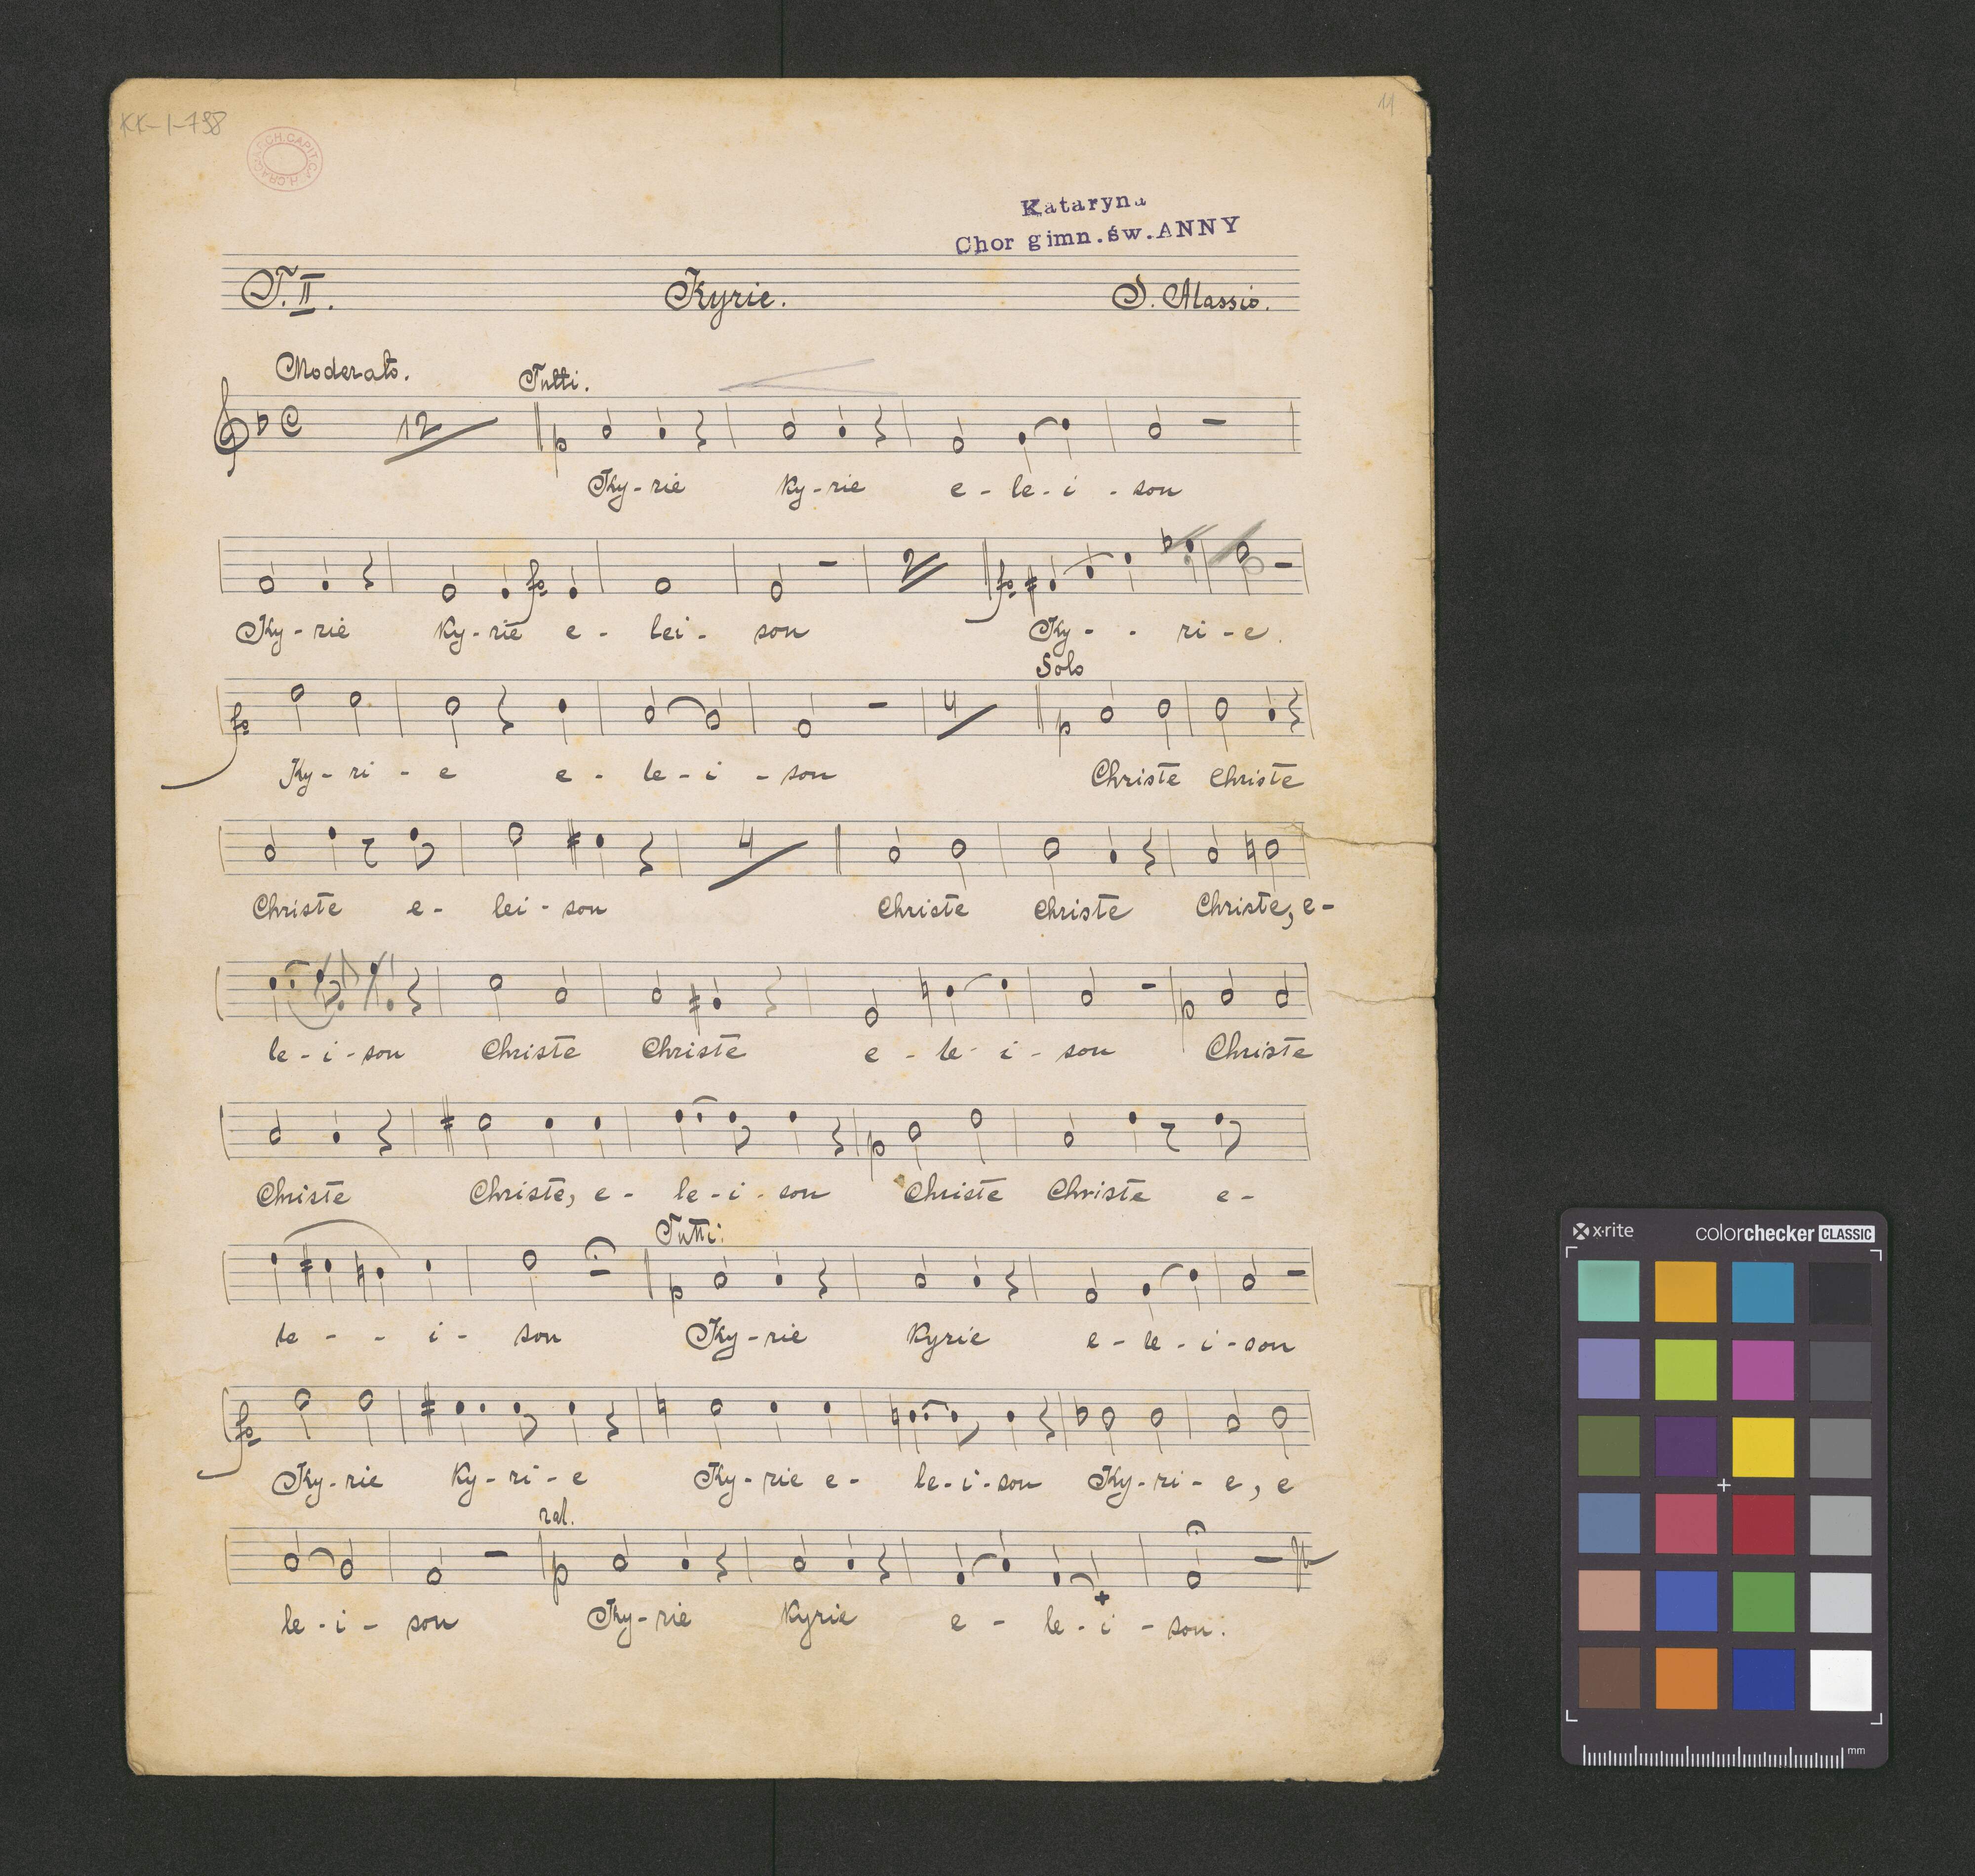 KK-I-798
11
Kataryna
Chor gimn.św.ANNY
T. II. Kyrie. S. Alassio.
Moderato. Tutti.
12
Ky-rie Ky-rie e-le-i-son
2
Ky-rie Ky-rie e-lei-son Ky- - ri-e.
Solo
4
Ky-ri-e e-le-i-son Christe Christe
4
Christe e-lei-son Christe Christe Christe, e-
le-i-son Christe Christe e-le-i-son Christe
Christe Christe, e-le-i-son Christe Christe e-
Tutti:
le - - i-son Ky-rie Kyrie e-le-i-son
Ky-rie Ky-ri-e Ky-rie e-le-i-son Ky-ri-e, e
ral.
le-i-son Ky-rie Kyrie e-le-i-son.
x-rite colorchecker CLASSIC
mm